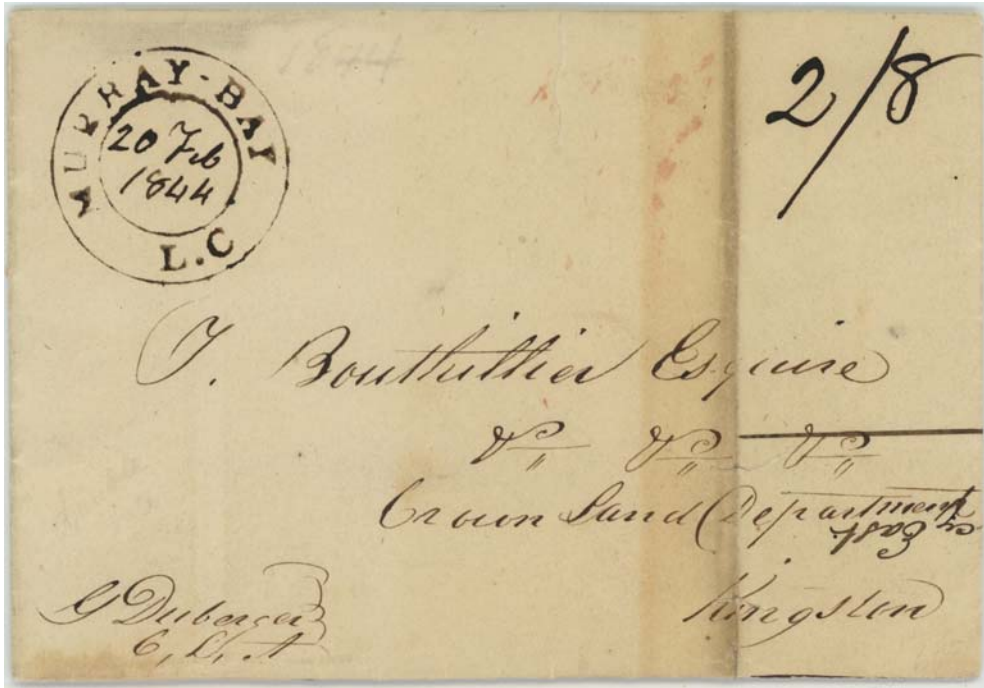 1844
MURRAY-BAY
20 Feb
1844
L.C
2/8
T. Bouthillier Esquire
&c &c &c
Crown Land Department
East
Kingston
G Duberger
C, L, A